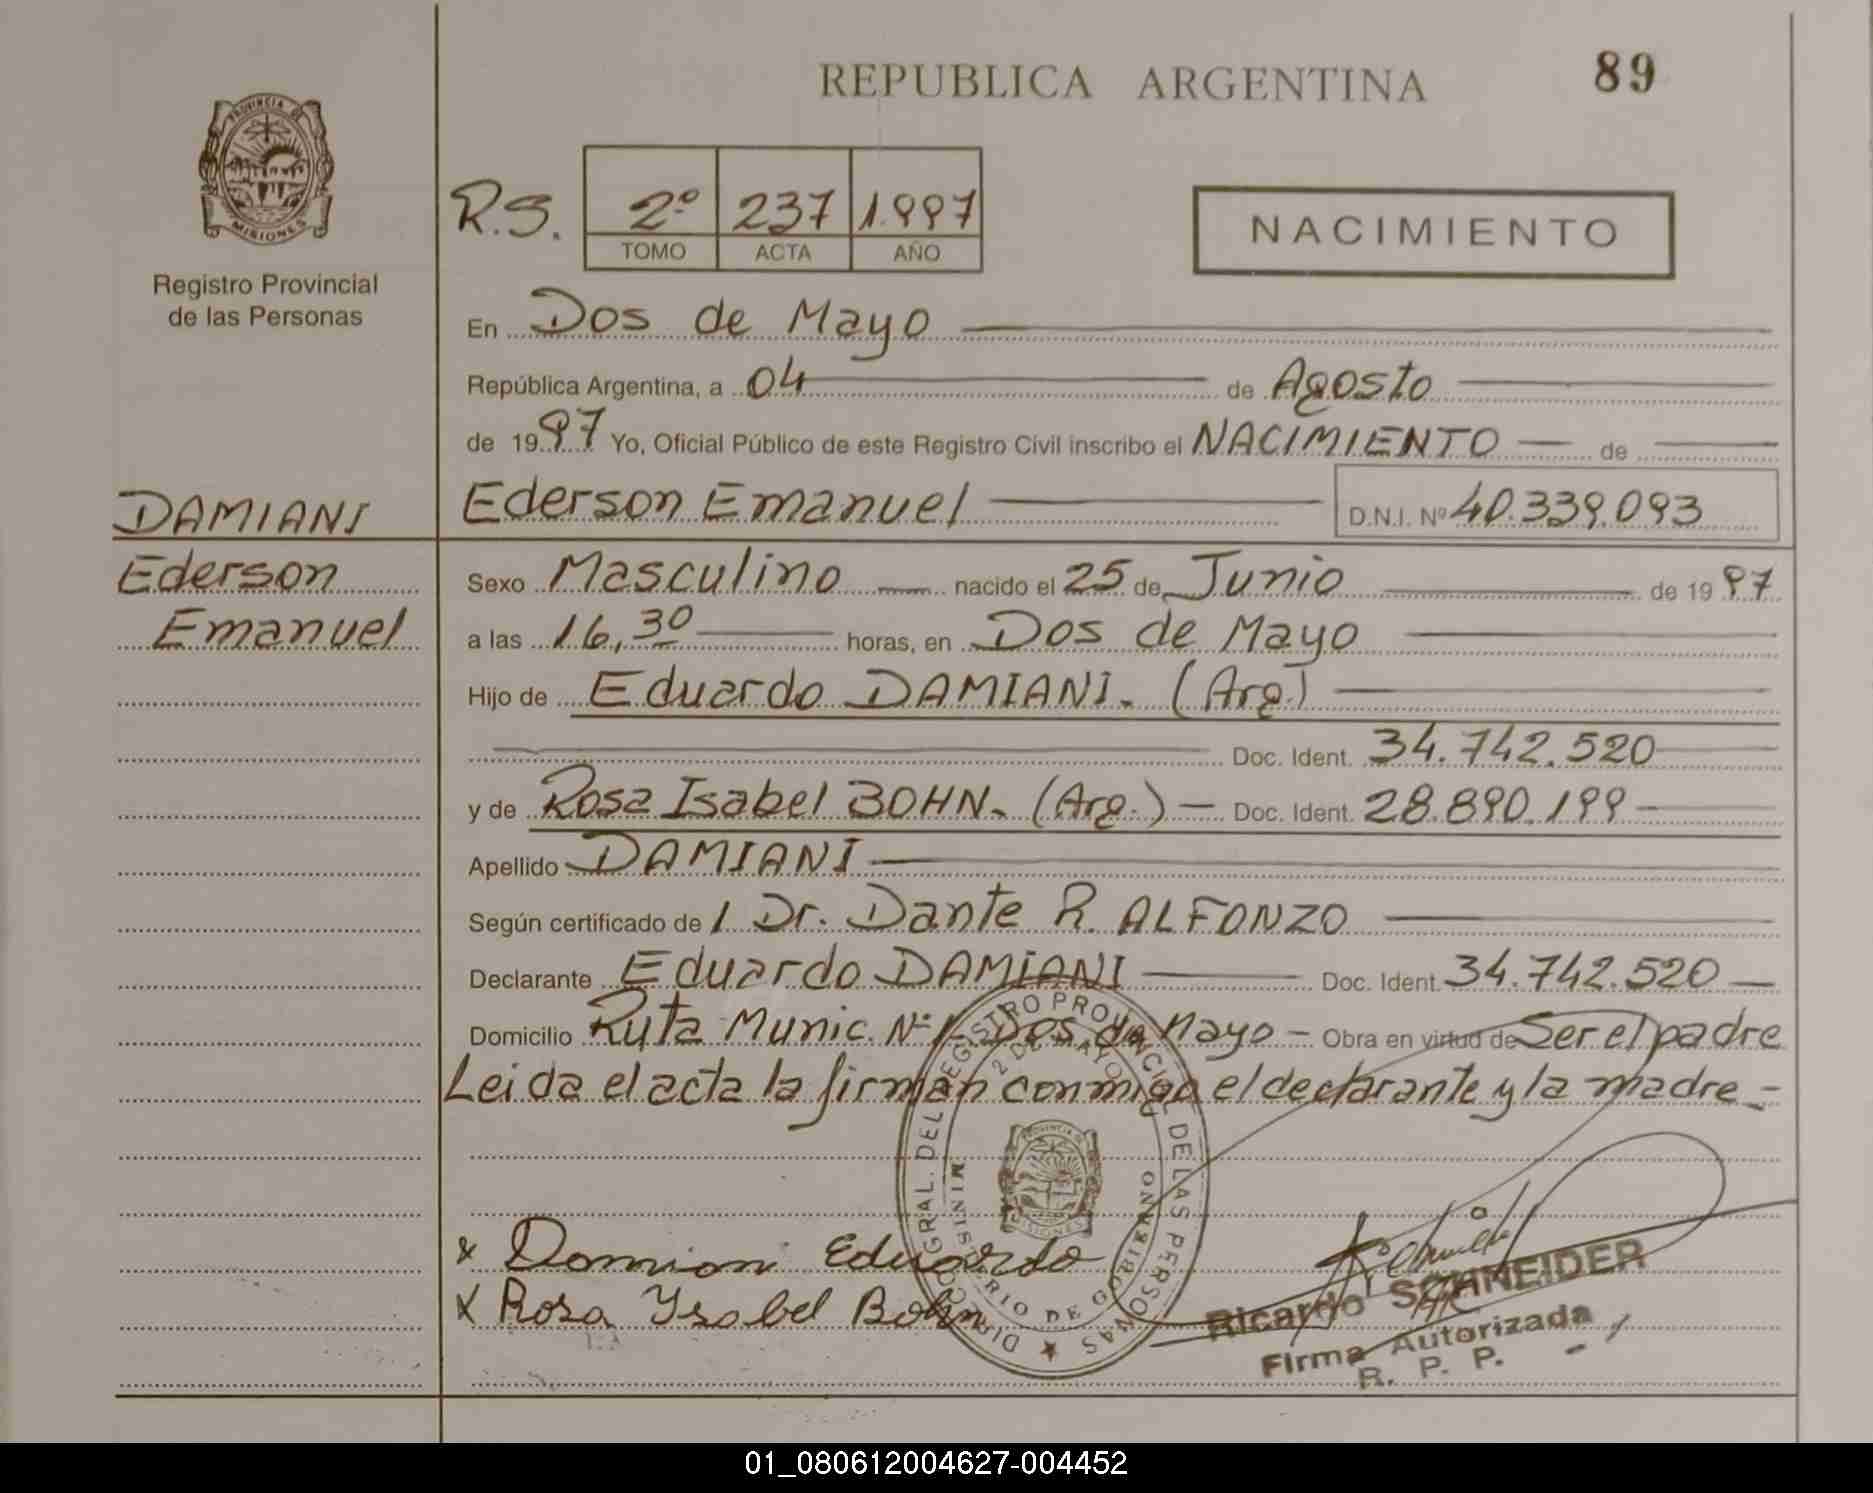 REPUBLICA ARGENTINA
89
PROVINCIA DE
MISIONES
Registro Provincial
de las Personas
R.S. 2º 237 1.997
TOMO ACTA AÑO
NACIMIENTO
En Dos de Mayo
República Argentina, a 04 de Agosto
de 1997 Yo, Oficial Público de este Registro Civil inscribo el NACIMIENTO de
DAMIANI
Ederson
Emanuel
Ederson Emanuel D.N.I. Nº 40.339.093
Sexo Masculino nacido el 25 de Junio de 1997
a las 16,30 horas, en Dos de Mayo
Hijo de Eduardo DAMIANI. (Arg.)
Doc. Ident. 34.742.520
y de Rosa Isabel BOHN. (Arg.) Doc. Ident. 28.890.199
Apellido DAMIANI
Según certificado de 1 Dr. Dante R. ALFONZO
Declarante Eduardo DAMIANI Doc. Ident. 34.742.520
Domicilio Ruta Munic. Nº 1 - Dos de Mayo - Obra en virtud de Ser el padre
Leida el acta la firman conmigo el declarante y la madre -
DIRECC. GRAL. DEL REGISTRO PROVINCIAL DE LAS PERSONAS
2 DE MAYO
MINISTERIO DE GOBIERNO
x Domian Eduardo
x Rosa Ysabel Bohn
Ricardo SCHNEIDER
Firma Autorizada
R. P. P.
01_080612004627-004452